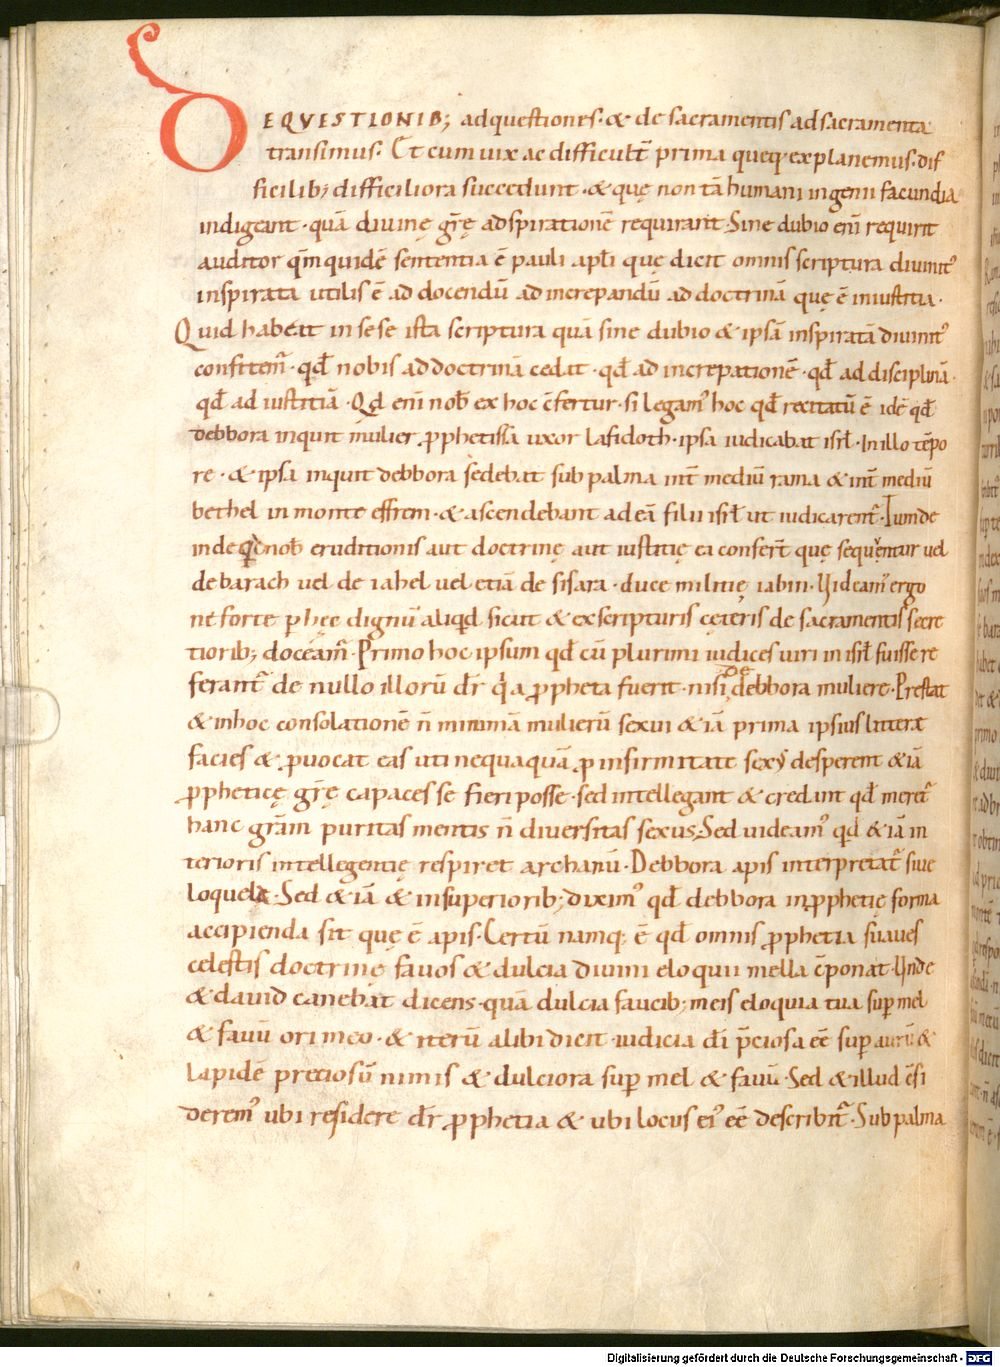 DEQVESTIONIB; adquestiones· & de sacramentis ad sacramenta
transimus· Et cum uix ac difficult̄ prima queq· explanemus· dif
ficilib; difficiliora succedunt· & quę non tā humani ingenii facundia
indigeant· quā diuinę gr̄ę adspirationē requirant· Sine dubio eni̅ requirit
auditor qm̄ quidē sententia ē pauli apl̄i que dicit omnis scriptura diuinit᾽
inspirata utilis ē ad docendū ad increpandū ad doctrinā quę ē in iustitia·
Quid habeat in se se ista scriptura quā sine dubio & ipsā inspiratā diuinit᾽
confitem᾽· qđ nobis ad doctrinā cedat· qđ ad increpationē· qđ ad disciplinā·
qđ ad iustitiā· Qđ eni̅ nob̄ ex hoc c̄fertur· si legam᾽ hoc qđ recitatū ē idē qđ
debbora inquit mulier p̲phetissa uxor lafidoth· ipsa iudicabat isrł· In illo tēpo
re· & ipsa inquit debbora sedebat sub palma int̄ mediū rama & int̄ mediū
bethel in monte effrem· & ascendebant ad eā filii isrł ut iudicarent᾽· Iam de
inde nob̄ eruditionis aut doctrinę aut iustitię ea consert̄ quę sequentur uel
de barach uel de iahel uel etiā de sisara· duce militię iabin· Uideam᾽ ergo
ne forte p hęc dignū aliqđ sicut & ex scripturis cęteris de sacramentis secre
tiorib; doceam᾽· Primo hoc ipsum qđ cū plurimi iudices uiri in isrł fuisse re
ferant᾽ de nullo illorū dr̄ qa p̲pheta fuerit· nisi de debbora muliere· Prestat
& in hoc consolationē n̄ minimā mulierū sexui & iā prima ipsius litterę
facies & p̲uocat eas uti nequaquā p̲ infirmitate sexus desperent & iā
p̲pheticę gr̄ę capaces se fieri posse· sed intellegant & credant qđ meret᾽
hanc gr̄am puritas mentis n̄ diuersitas sexus· Sed uideam᾽ qđ & iā in
terioris intellegentię respiret archanū· Debbora apis interpretat᾽ siue
loquela· Sed & iā & in superiorib; dixim᾽ qđ debbora in p̲phetię forma
accipienda sit quę ē apis· Certū namq; ē qđ omnis p̲phetia suaues
celestis doctrinę fauos & dulcia diuini eloquii mella c̄ponat· Unde
& dauid canebat dicens· quā dulcia faucib; meis eloquia tua sup mel
& fauū ori meo· & iterū alibi dicit· iudicia dī p̄ciosa eē sup aurū &
lapidē preciosū nimis & dulciora sup mel & fauū· Sed & illud c̄si
derem᾽ ubi residere dr̄ p̲phetia & ubi locus ei᾽ eē describit᾽· Sub palma
Digitalisierung gefördert durch die Deutsche Forschungsgemeinschaft - DFG